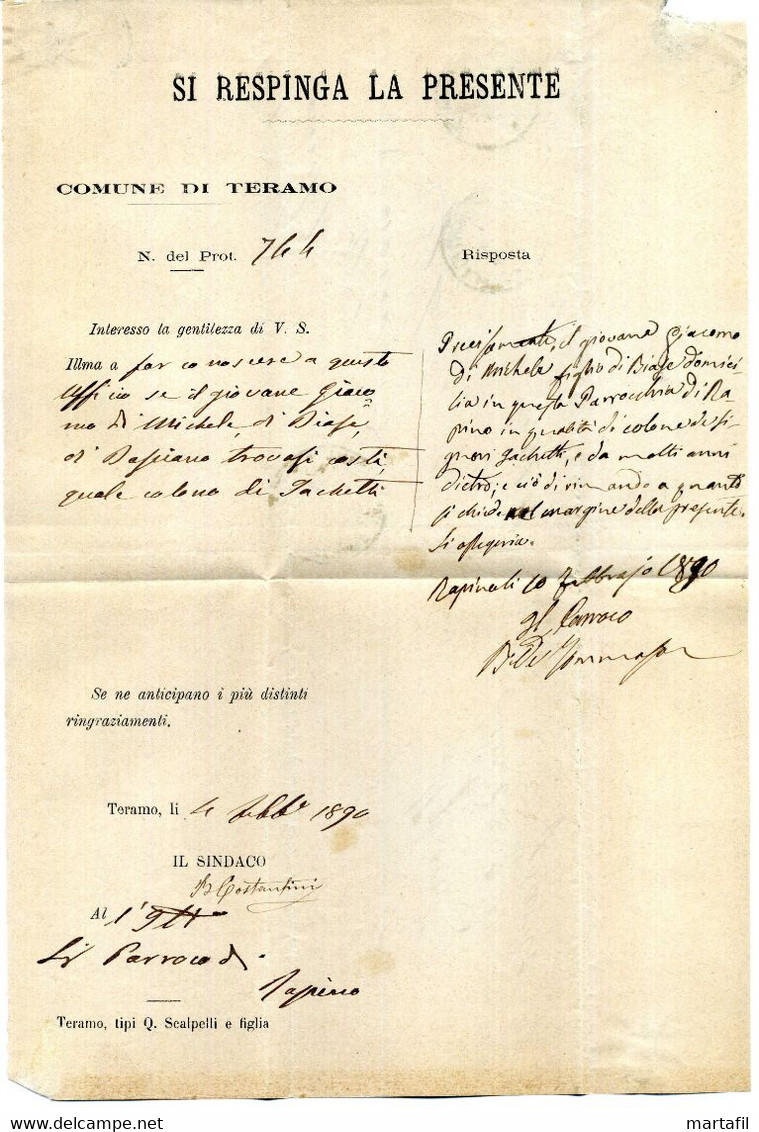 SI RESPINGA LA PRESENTE
COMUNE DI TERAMO
N. del Prot. 744
Interesso la gentilezza di V. S.
Illma a far conoscere a questo
Ufficio se il giovane Giaco
mo di Michele, di Biase,
di trovasi costì,
quale colono di Iachetti
Se ne anticipano i più distinti
ringraziamenti.
Teramo, li 4 febb.o 1890
IL SINDACO
B Costantini
Al
Sig Parroco di
Rapino
Teramo, tipi Q. Scalpelli e figlia
Risposta
il giovane Giacomo
di Michele figlio di Biase domici
lia in questa Parrocchia di Ra
pino in qualità di colono de si
gnori Iachetti, e da molti anni
dietro; e ciò di rimando a quanto
si chiede nel margine della presente.
Rapino li 10 Febbrajo 1890
Il Parroco
martafil